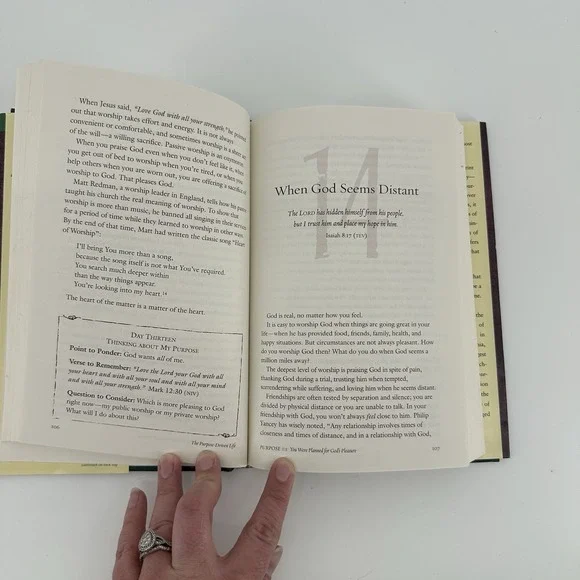 When Jesus said, "Love God with all your strength" he pointed
out that worship takes effort and energy. It is not always
convenient or comfortable, and sometimes worship is a sheer act
of the will—a willing sacrifice. Passive worship is an oxymoron.
When you praise God even when you don't feel like it, when
you get out of bed to worship when you're tired, or when you
help others when you are worn out, you are offering a sacrifice of
worship to God. That pleases God.
Matt Redman, a worship leader in England, tells how his pastor
taught his church the real meaning of worship. To show that
worship is more than music, he banned all singing in their services
for a period of time while they learned to worship in other ways.
By the end of that time, Matt had written the classic song "Heart
of Worship":
I'll bring You more than a song,
because the song itself is not what You've required.
You search much deeper within
than the way things appear.
You're looking into my heart.14
The heart of the matter is a matter of the heart.
DAY THIRTEEN
THINKING ABOUT MY PURPOSE
Point to Ponder: God wants all of me.
Verse to Remember: "Love the Lord your God with all
your heart and with all your soul and with all your mind
and with all your strength." Mark 12:30 (NIV)
Question to Consider: Which is more pleasing to God
right now—my public worship or my private worship?
What will I do about this?
106
The Purpose-Driven Life
14
When God Seems Distant
The LORD has hidden himself from his people,
but I trust him and place my hope in him.
Isaiah 8:17 (TEV)
God is real, no matter how you feel.
It is easy to worship God when things are going great in your
life—when he has provided food, friends, family, health, and
happy situations. But circumstances are not always pleasant. How
do you worship God then? What do you do when God seems a
million miles away?
The deepest level of worship is praising God in spite of pain,
thanking God during a trial, trusting him when tempted,
surrendering while suffering, and loving him when he seems distant.
Friendships are often tested by separation and silence; you are
divided by physical distance or you are unable to talk. In your
friendship with God, you won't always feel close to him. Philip
Yancey has wisely noted, "Any relationship involves times of
closeness and times of distance, and in a relationship with God,
PURPOSE #1: You Were Planned for God's Pleasure
107